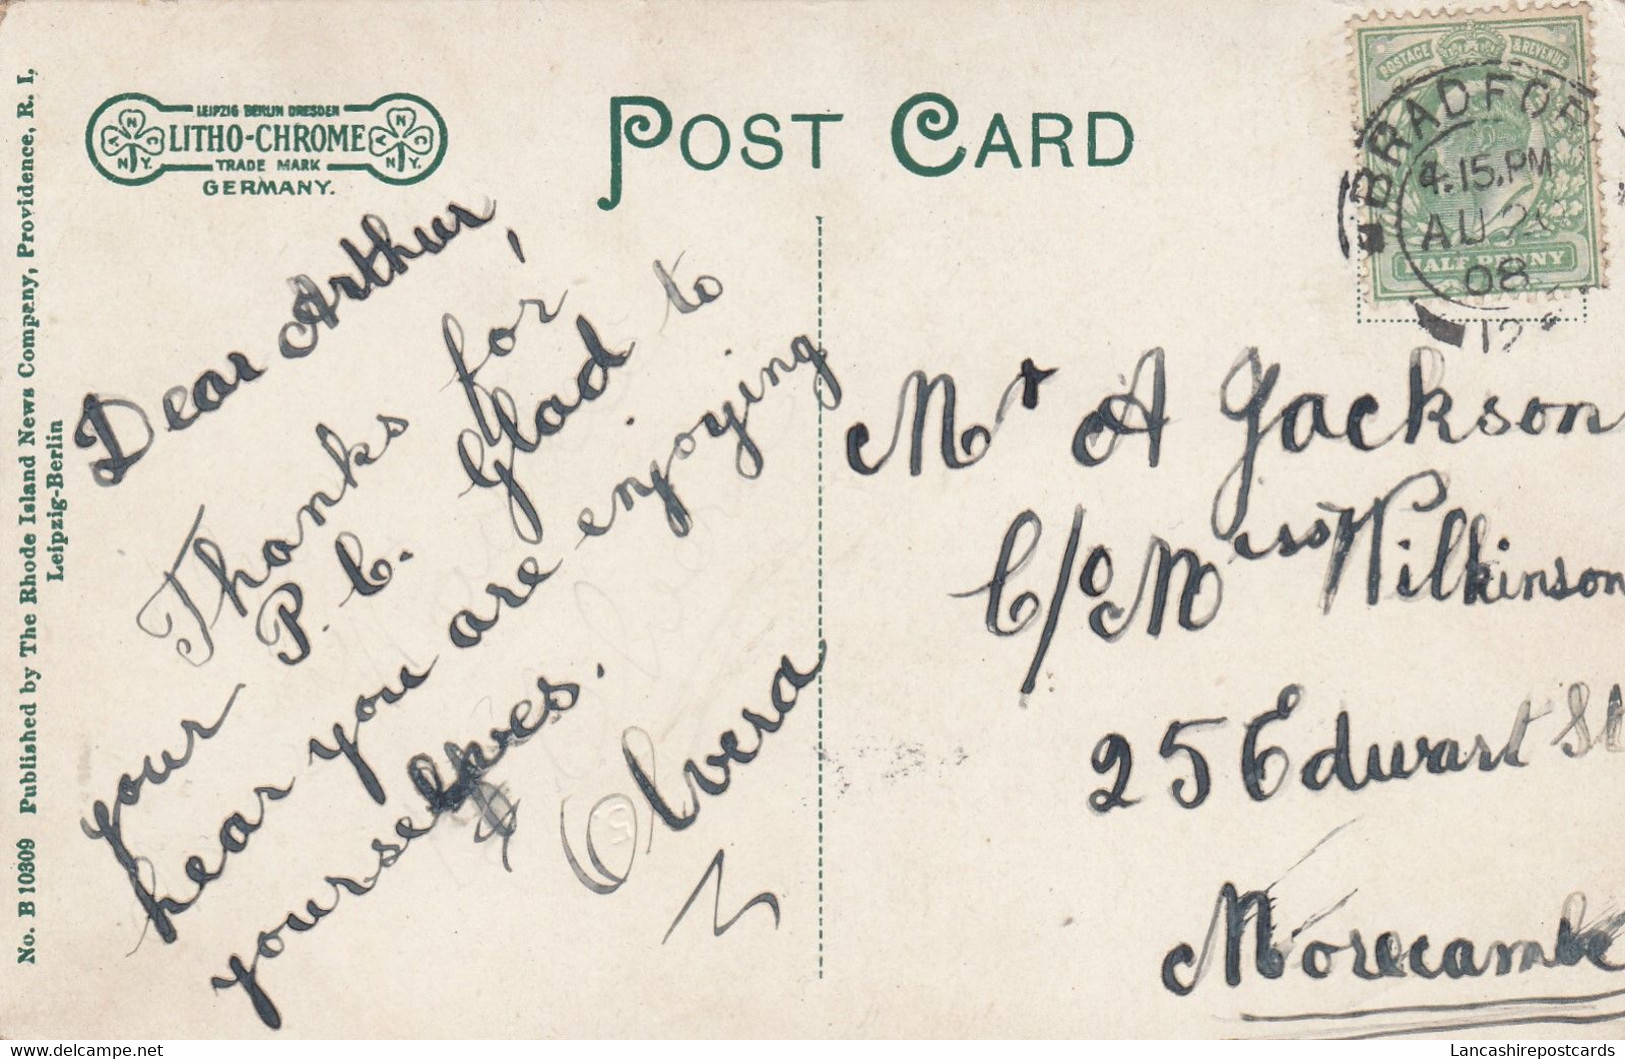 No. B 10309 Published by The Rhode Island News Company, Providence, R. I,
Leipzig-Berlin
LEIPZIG BERLIN DRESDEN
LITHO-CHROME
TRADE MARK
GERMANY.
POST CARD
POSTAGE & REVENUE
HALF PENNY
4.15.PM
08
12
Dear Arthur,
Thanks for
your P. C. Glad to
hear you are enjoying
yourselves.
Mr A Jackson
C/o Miss Wilkinson
25 Edwart St
Morecambe
Lancashirepostcards